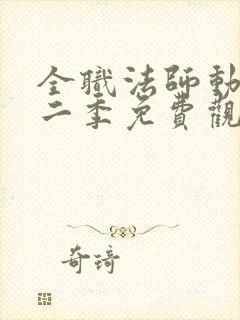 全職法師動
二季免費觀
奇琦